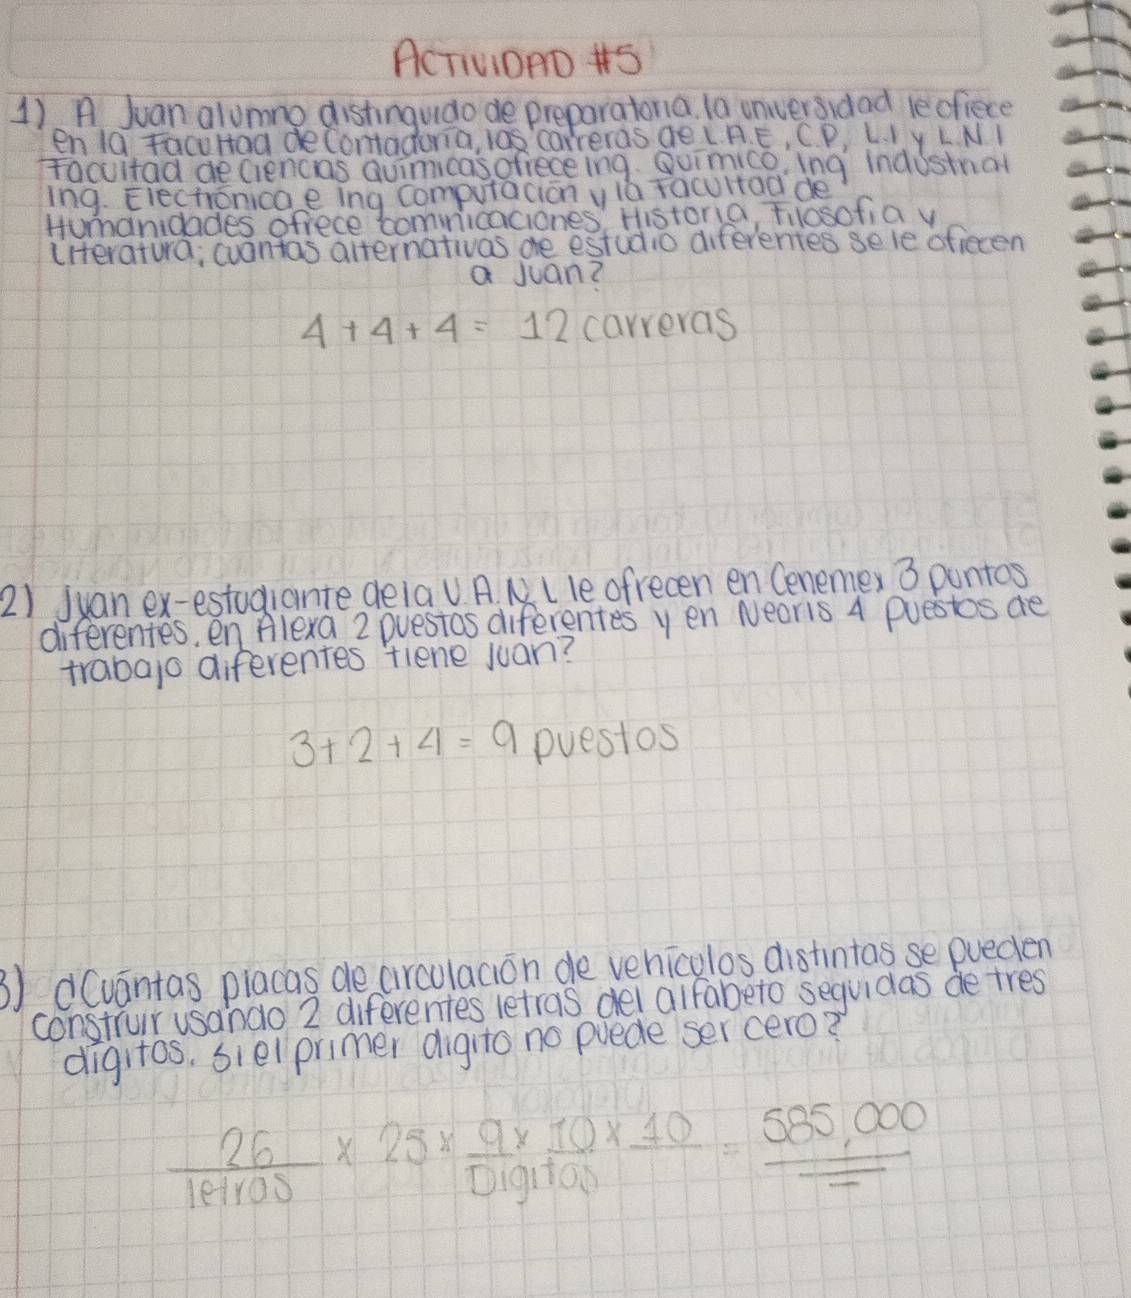 ACTIVIDAD #5
1) A Juan alumno distinguido de preparatoria. la universidad le ofrece
en la Facultad de Contaduría, las carreras de L.A.E, C.P, L.I y L.N.I
Facultad de Ciencias Químicas ofrece ing. Químico, ing industrial
ing. Electrónica e ing computación y la Facultad de
Humanidades ofrece comunicaciones, Historia, Filosofia y
Literatura; cuantas alternativas de estudio diferentes se le ofrecen
a Juan?
4 + 4 + 4 = 12 carreras
2) Juan ex-estudiante de la U.A.N.L le ofrecen en Cenemex 3 puntos
diferentes. en Alexa 2 puestos diferentes y en Neoris 4 puestos de
trabajo diferentes tiene Juan?
3 + 2 + 4 = 9 puestos
3) ¿Cuántas placas de circulación de vehículos distintas se pueden
construir usando 2 diferentes letras del alfabeto seguidas de tres
digitos. si el primer digito no puede ser cero?
26 x 25 x 9 x 10 x 10 = 585,000
letras Digitos